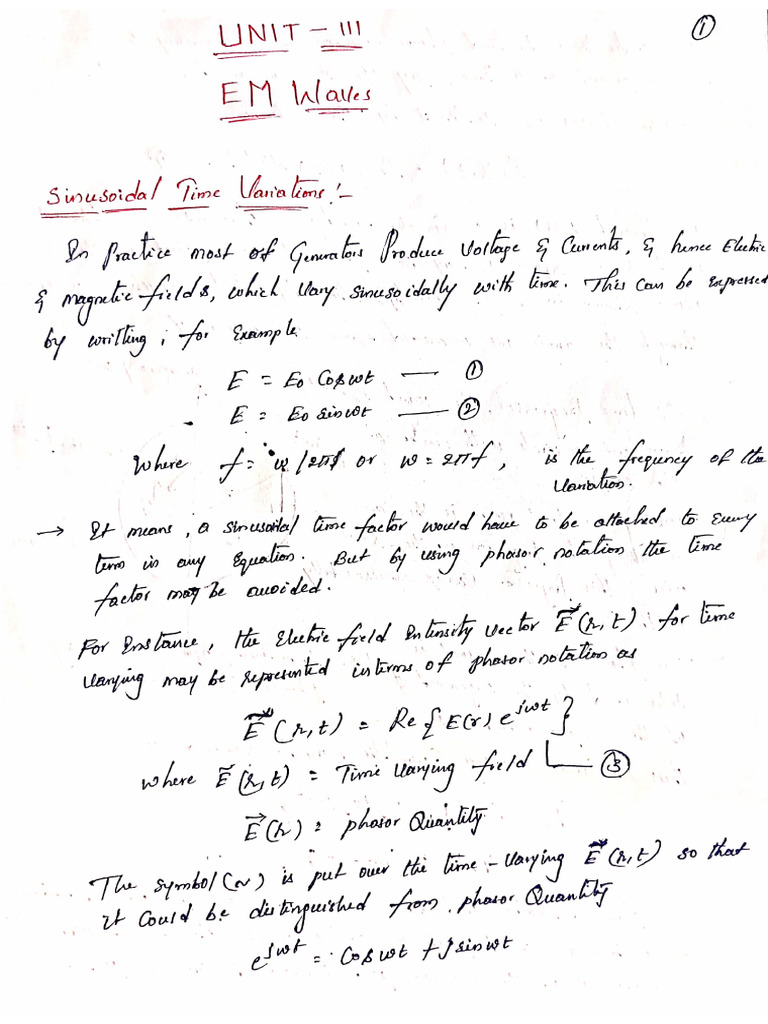 UNIT - III
①
EM Waves
Sinusoidal Time Variations:-
In Practice most of Generators Produce Voltage & Currents, & hence Electric
& magnetic fields, which vary sinusoidally with time. This can be expressed
by writing, for Example
E = E0 Cosωt — ①
E = E0 sinωt — ②
where f = ω/2π or ω = 2πf, is the frequency of the
variation.
→ It means, a sinusoidal time factor would have to be attached to Every
term in any Equation. But by using phasor notation the time
factor may be avoided.
For Instance, the Electric field Intensity vector Ẽ(r,t) for time
varying may be represented interms of phasor notation as
Ẽ(r,t) = Re{E(r) e^jωt}
where Ẽ(r,t) = Time varying field — ③
E⃗(r) = phasor Quantity
The symbol (~) is put over the time-varying Ẽ(r,t) so that
it could be distinguished from phasor Quantity
e^jωt = Cosωt + jsinωt